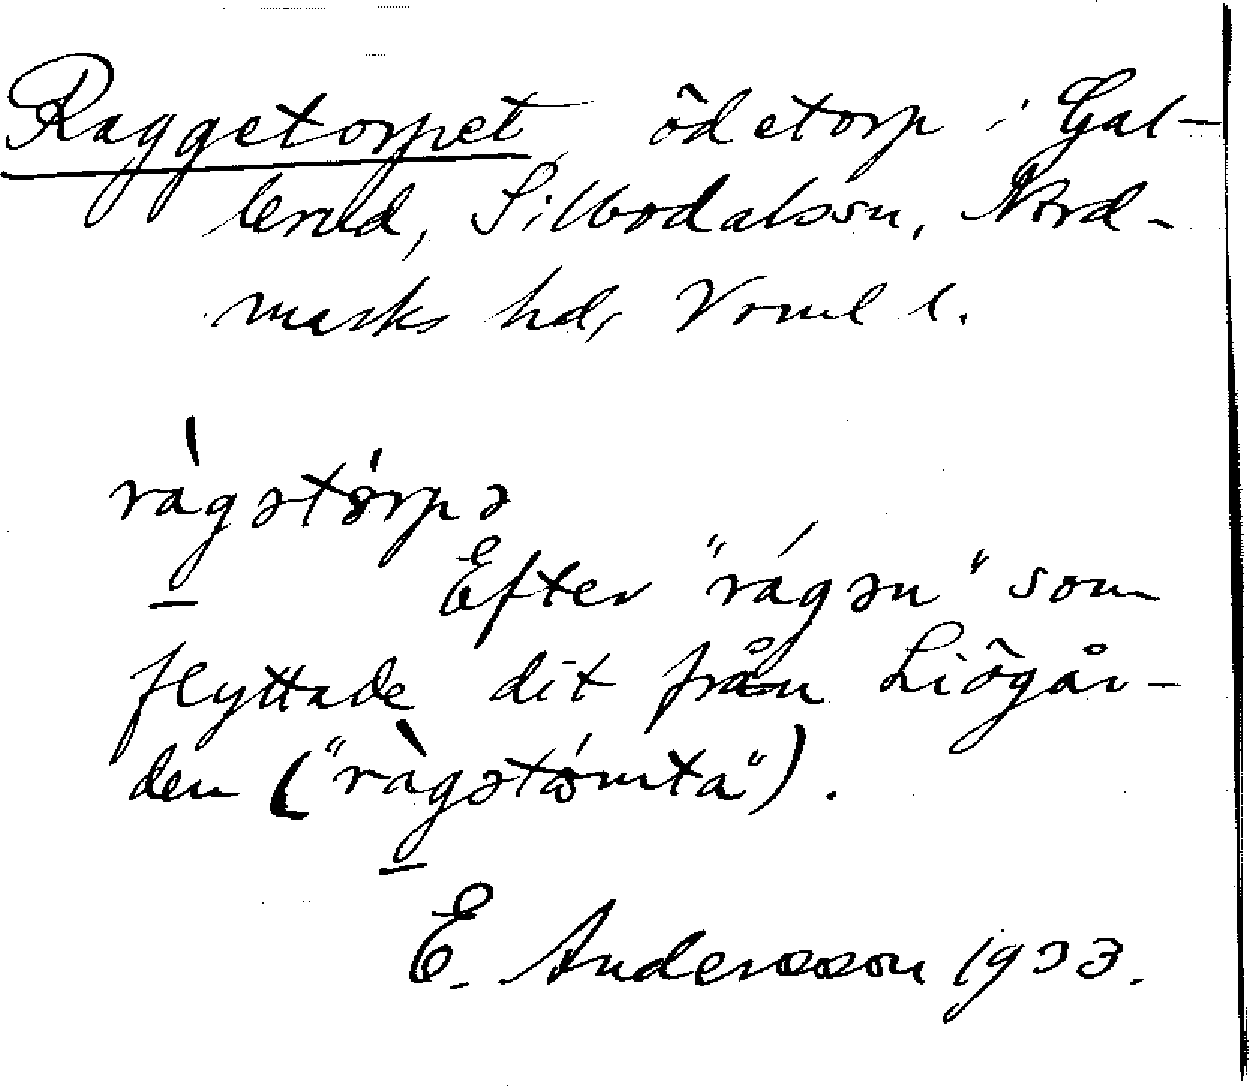 Raggetorpet ödetorp i Gal-
lerud, Silbodalssn, Nord-
marks hd, Vrml l.
ràgətórpə
Efter "rágən" som
flyttade dit från Liögår-
den ("ràgətómta").
E. Andersson 1933.